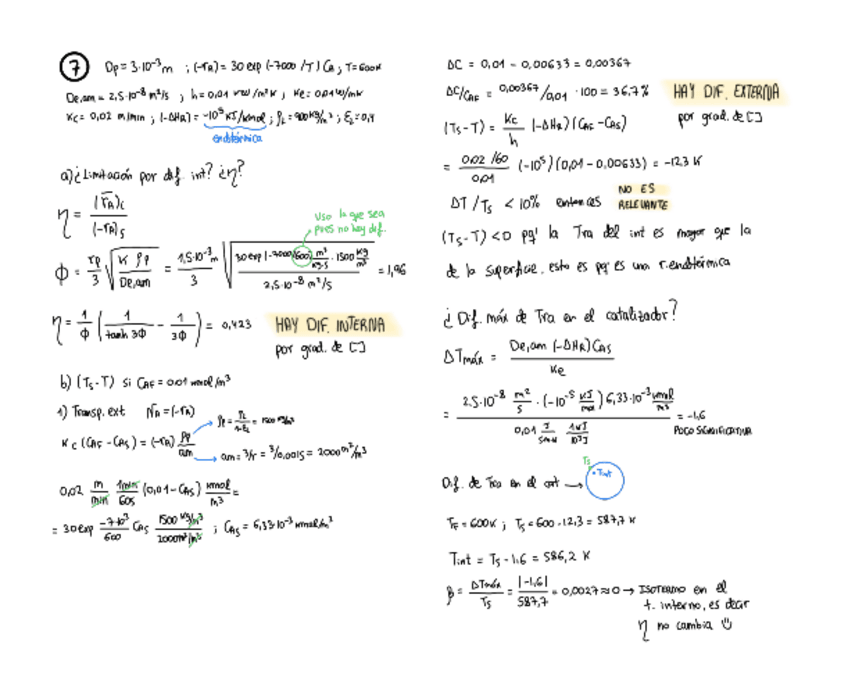 7 Dp = 3·10⁻³ m ; (-rA) = 30 exp (-7000/T) CA ; T = 600K
De,am = 2,5·10⁻⁸ m²/s ; h = 0,01 /m²K ; Ke = 0,01
Kc = 0,02 m/min ; (-ΔHR) = -10⁵ KJ/kmol ; ρL = 900 kg/m³ ; εL = 0,4
endotérmica
a) ¿Limitación por dif. int? ¿η?
η = (rA)c / (-rA)s
Uso la que sea
pues no hay dif.
Φ = rp/3 √(K ρp / De,am) = 1,5·10⁻³ m / 3 √(30 exp (-7000/600) m³/kg·s · 1500 kg/m³ / 2,5·10⁻⁸ m²/s) = 1,96
η = 1/Φ (1/tanh 3Φ - 1/3Φ) = 0,423 HAY DIF. INTERNA
por grad. de [ ]
b) (Ts-T) si CAF = 0.01 kmol/m³
1) Transp. ext NA = (-rA)
ρp = ρL/1-εL = 1500 kg/m³
Kc (CAF - CAs) = (-rA) ρp/am
am = 3/r = 3/0,0015 = 2000 m²/m³
0,02 m/min 1min/60s (0,01 - CAs) kmol/m³ =
= 30 exp -7·10³/600 CAs 1500 kg/m³ / 2000 m²/m³ ; CAs = 6,33·10⁻³ kmol/m³
ΔC = 0,01 - 0,00633 = 0,00367
ΔC/CAF = 0,00367/0,01 · 100 = 36,7% HAY DIF. EXTERNA
por grad. de [ ]
(Ts-T) = Kc/h (-ΔHR) (CAF - CAs)
= 0,02/60 / 0,01 (-10⁵) (0,01 - 0,00633) = -12,3 K
ΔT / Ts < 10% entonces NO ES
RELEVANTE
(Ts-T) < 0 pq' la Tra del int es mayor que la
de la superficie, esto es pq' es una r. endotérmica
¿Dif. máx de Tra en el catalizador?
ΔTmáx = De,am (-ΔHR) CAs / Ke
= 2.5·10⁻⁸ m²/s · (-10⁻⁵ KJ/kmol) 6,33·10⁻³ kmol/m³ / 0,01 J 1KJ/10³J = -1,6
POCO SIGNIFICATIVA
Dif. de Tra en el cat → Ts Tint
TF = 600K ; Ts = 600 - 12,3 = 587,7 K
Tint = Ts - 1,6 = 586,2 K
β = ΔTmáx/Ts = |-1,6|/587,7 = 0,0027 ≈ 0 → ISOTERMO en el
t. interno, es decir
η no cambia ☺